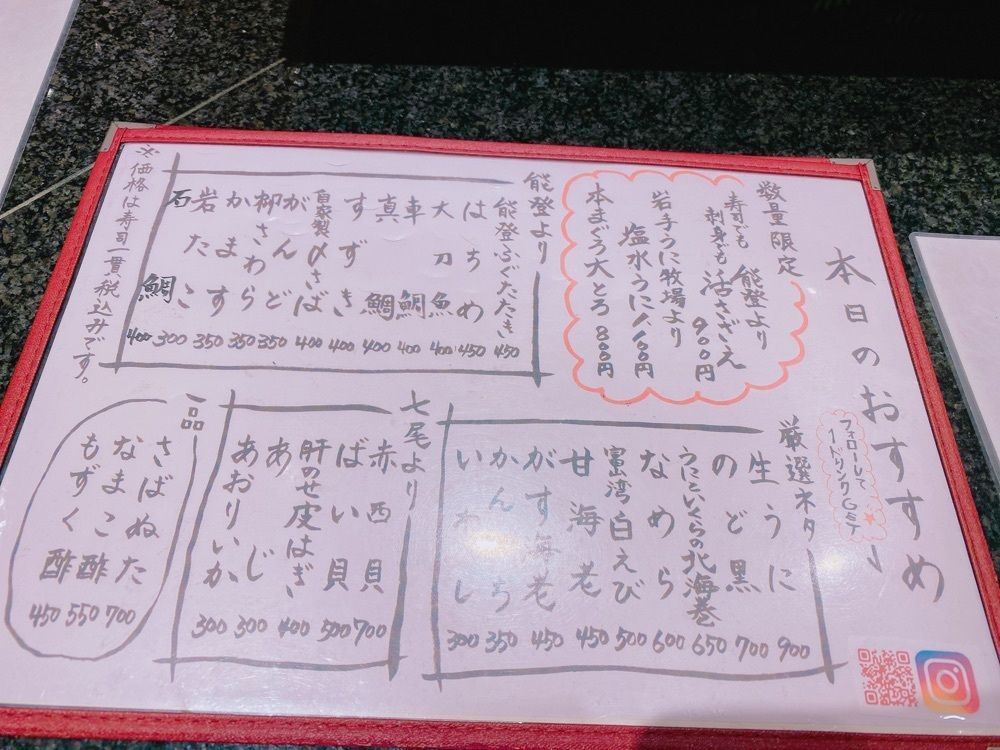 本日のおすすめ
フォローして
1ドリンクGET
数量限定
能登より
寿司でも
刺身でも 活さざえ 900円
岩手うに牧場より
塩水うに 1,100円
本まぐろ大とろ 800円
能登より
能登ふぐたたき 450
はちめ 450
大刀魚 400
車鯛 400
真鯛 400
すずき 400
自家製〆さば 400
がんど 350
柳さわら 350
かます 350
岩たこ 300
石鯛 400
※価格は寿司一貫税込みです。
厳選ネタ
生うに 900
のど黒 700
うにといくらの北海巻 650
なめら 600
富山湾白えび 500
甘海老 450
がす海老 450
かんぱち 350
いわし 300
七尾より
赤西貝 700
ばい貝 500
肝のせ皮はぎ 400
あじ 300
あおりいか 300
一品
さばぬた 700
なまこ酢 550
もずく酢 450